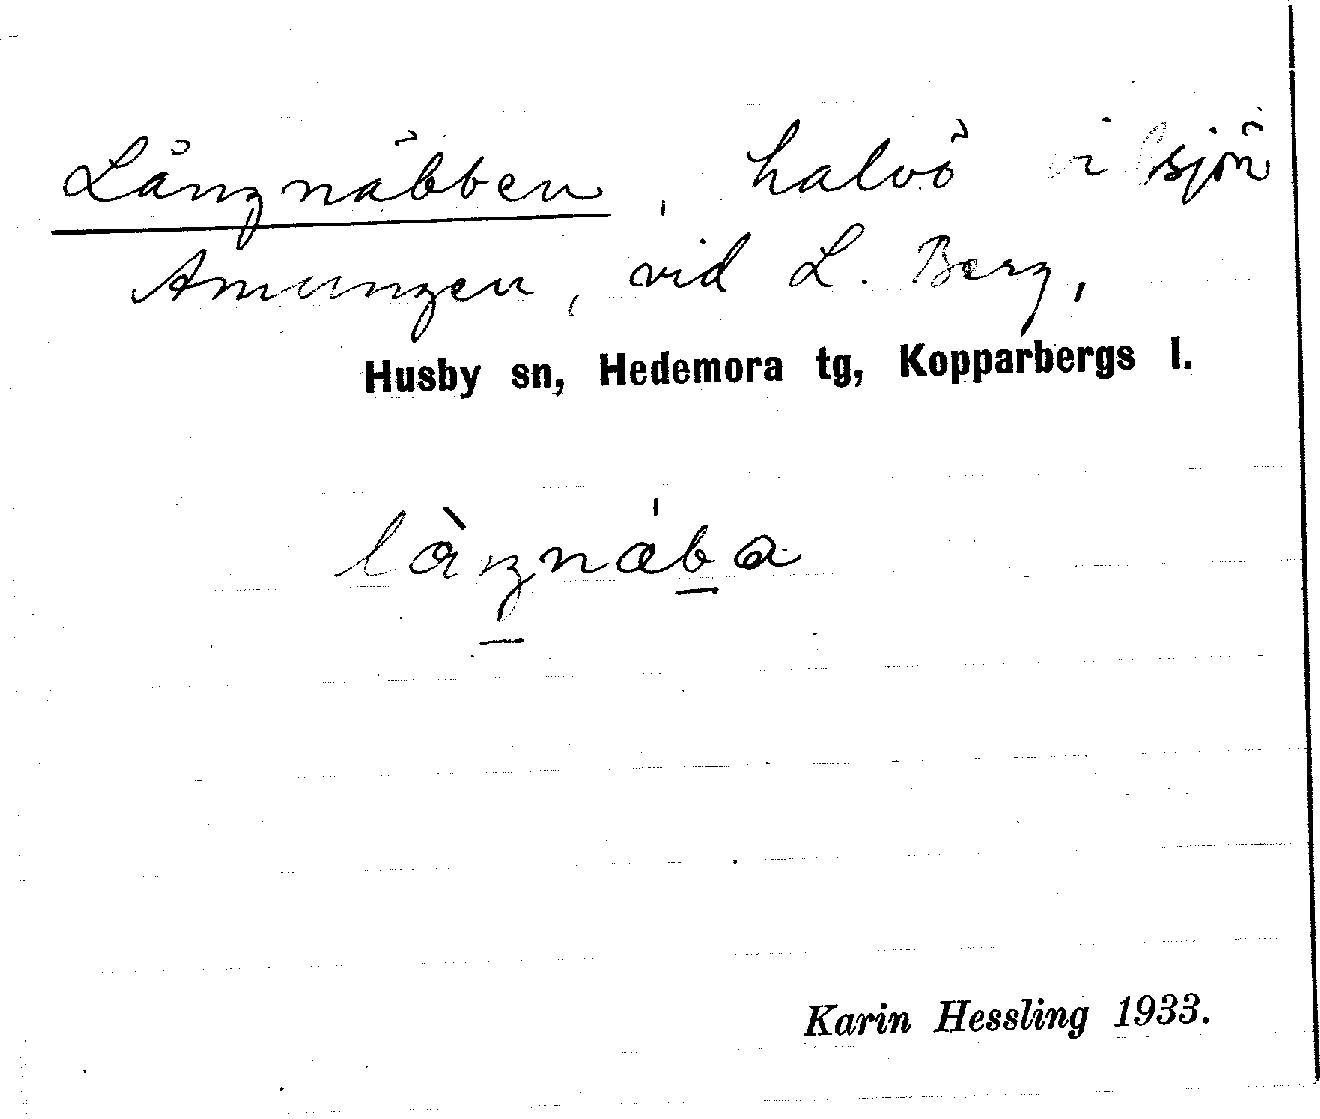 Långnäbben, halvö i sjön
Amungen, vid L. Berg,
Husby sn, Hedemora tg, Kopparbergs l.
Karin Hessling 1933.